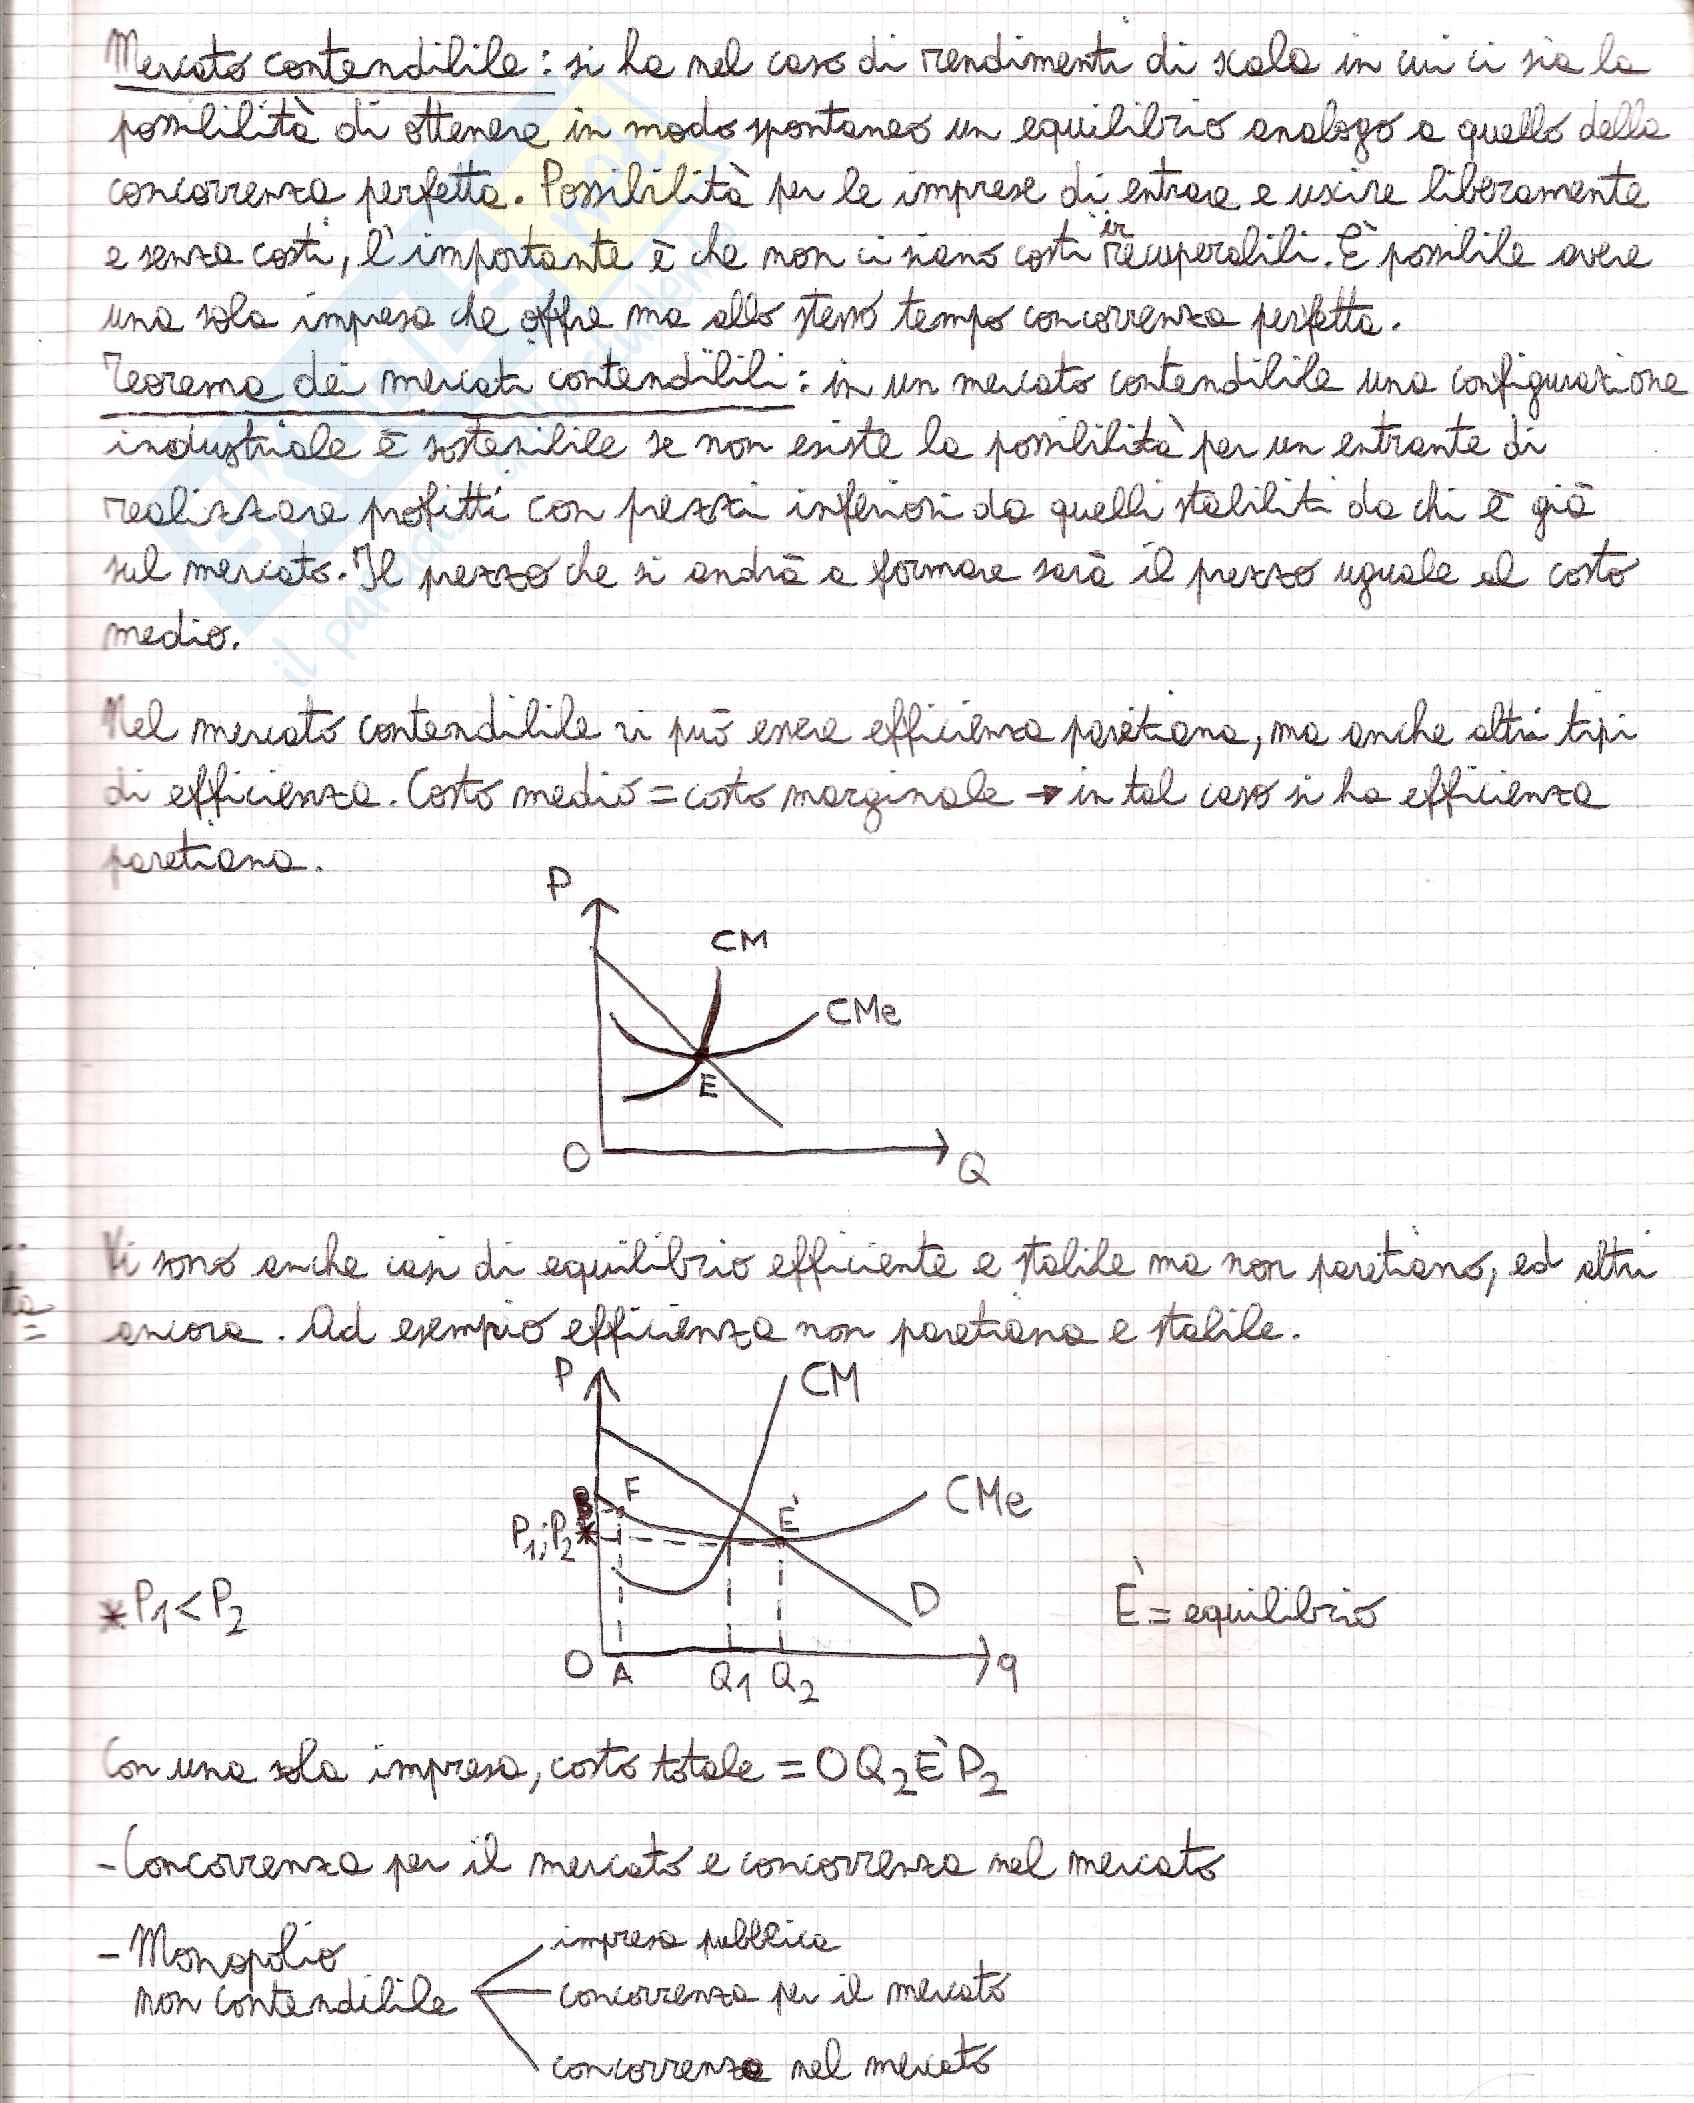 Mercato contendibile: si ha nel caso di rendimenti di scala in cui ci sia la
possibilità di ottenere in modo spontaneo un equilibrio analogo a quello della
concorrenza perfetta. Possibilità per le imprese di entrare e uscire liberamente
e senza costi, l'importante è che non ci siano costi irrecuperabili. È possibile avere
una sola impresa che offre ma allo stesso tempo concorrenza perfetta.
Teorema dei mercati contendibili: in un mercato contendibile una configurazione
industriale è sostenibile se non esiste la possibilità per un entrante di
realizzare profitti con prezzi inferiori da quelli stabiliti da chi è già
sul mercato. Il prezzo che si andrà a formare sarà il prezzo uguale al costo
medio.
Nel mercato contendibile vi può essere efficienza paretiana, ma anche altri tipi
di efficienza. Costo medio = costo marginale → in tal caso si ha efficienza
paretiana.
P
CM
CMe
E
O
Q
Vi sono anche casi di equilibrio efficiente e stabile ma non paretiano, ed altri
ancora. Ad esempio efficienza non paretiana e stabile.
P
CM
B
F
E'
CMe
P1;P2
*
*P1<P2
D
E' = equilibrio
O
A
Q1
Q2
q
Con una sola impresa, costo totale = OQ2E'P2
- Concorrenza per il mercato e concorrenza nel mercato
- Monopolio
non contendibile
impresa pubblica
concorrenza per il mercato
concorrenza nel mercato